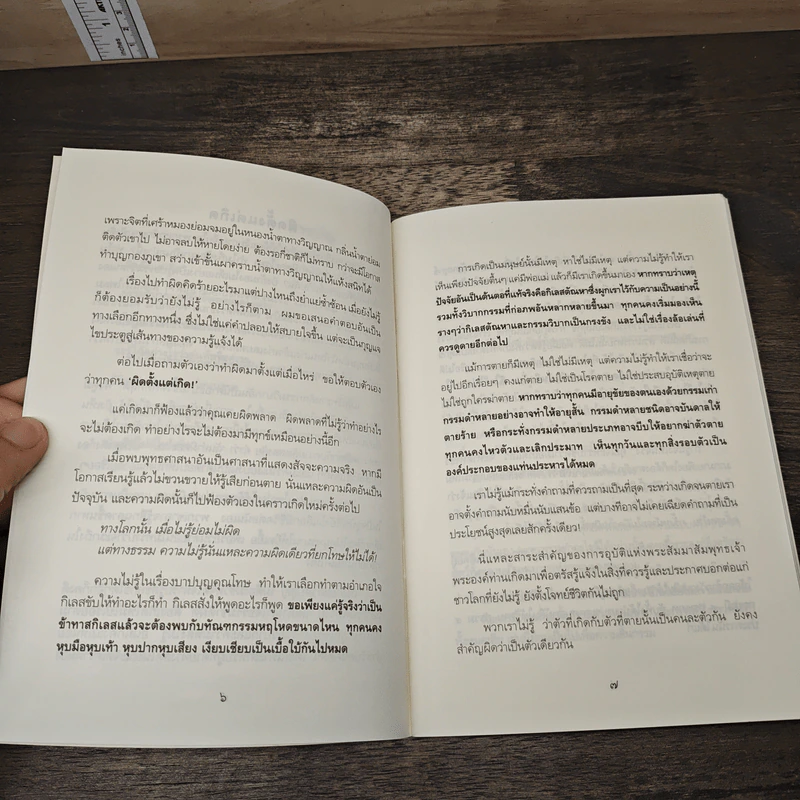 เพราะจิตที่เศร้าหมองย่อมจมอยู่ในหนองน้ำตาทางวิญญาณ กลิ่นน้ำตาย่อม
ติดตัวเขาไป ไม่อาจลบให้หายโดยง่าย ต้องรอกี่ชาติก็ไม่ทราบ กว่าจะมีโอกาส
ทำบุญกองภูเขา สว่างเข้าขั้นเผาคราบน้ำตาทางวิญญาณให้แห้งสนิทได้
เรื่องไปทำผิดคิดร้ายอะไรมาแต่ปางไหนถึงย่ำแย่ซ้ำซ้อน เมื่อยังไม่รู้
ก็ต้องยอมรับว่ายังไม่รู้ อย่างไรก็ตาม ผมขอเสนอคำตอบอันเป็น
ทางเลือกอีกทางหนึ่ง ซึ่งไม่ใช่แค่คำปลอบให้สบายใจขึ้น แต่จะเป็นกุญแจ
ไขประตูสู่เส้นทางของความรู้แจ้งได้
ต่อไปเมื่อถามตัวเองว่าทำผิดมาตั้งแต่เมื่อไหร่ ขอให้ตอบตัวเอง
ว่าทุกคน 'ผิดตั้งแต่เกิด!'
แค่เกิดมาก็ฟ้องแล้วว่าคุณเคยผิดพลาด ผิดพลาดที่ไม่รู้ว่าทำอย่างไร
จะไม่ต้องเกิด ทำอย่างไรจะไม่ต้องมามีทุกข์เหมือนอย่างนี้อีก
เมื่อพบพุทธศาสนาอันเป็นศาสนาที่แสดงสัจจะความจริง หากมี
โอกาสเรียนรู้แล้วไม่ขวนขวายให้รู้เสียก่อนตาย นั่นแหละความผิดอันเป็น
ปัจจุบัน และความผิดนั้นก็ไปฟ้องตัวเองในคราวเกิดใหม่ครั้งต่อไป
ทางโลกนั้น เมื่อไม่รู้ย่อมไม่ผิด
แต่ทางธรรม ความไม่รู้นั่นแหละความผิดเดียวที่ยกโทษให้ไม่ได้!
ความไม่รู้ในเรื่องบาปบุญคุณโทษ ทำให้เราเลือกทำตามอำเภอใจ
กิเลสขับให้ทำอะไรก็ทำ กิเลสสั่งให้พูดอะไรก็พูด ขอเพียงแค่รู้จริงว่าเป็น
ข้าทาสกิเลสแล้วจะต้องพบกับทัณฑกรรมหฤโหดขนาดไหน ทุกคนคง
หุบมือหุบเท้า หุบปากหุบเสียง เงียบเชียบเป็นเบื้อใบ้กันไปหมด
๖
การเกิดเป็นมนุษย์นั้นมีเหตุ หาใช่ไม่มีเหตุ แต่ความไม่รู้ทำให้เรา
เห็นเพียงปัจจัยตื้นๆ แค่มีพ่อแม่ แล้วก็มีเราเกิดขึ้นมาเอง หากทราบว่าเหตุ
ปัจจัยอันเป็นต้นตอที่แท้จริงคือกิเลสตัณหาซึ่งผูกเราไว้กับความเป็นอย่างนี้
รวมทั้งวิบากกรรมที่ก่อภพอันหลากหลายขึ้นมา ทุกคนคงเริ่มมองเห็น
รางๆว่ากิเลสตัณหาและกรรมวิบากเป็นกรงขัง และไม่ใช่เรื่องล้อเล่นที่
ควรดูดายอีกต่อไป
แม้การตายก็มีเหตุ ไม่ใช่ไม่มีเหตุ แต่ความไม่รู้ทำให้เราเชื่อว่าจะ
อยู่ไปอีกเรื่อยๆ คงแก่ตาย ไม่ใช่เป็นโรคตาย ไม่ใช่ประสบอุบัติเหตุตาย
ไม่ใช่ถูกใครฆ่าตาย หากทราบว่าทุกคนมีอายุขัยของตนเองด้วยกรรมเก่า
กรรมดำหลายอย่างอาจทำให้อายุสั้น กรรมดำหลายชนิดอาจบันดาลให้
ตายร้าย หรือกระทั่งกรรมดำหลายประเภทอาจบีบให้อยากฆ่าตัวตาย
ทุกคนคงไหวตัวและเลิกประมาท เห็นทุกวันและทุกสิ่งรอบตัวเป็น
องค์ประกอบของแท่นประหารได้หมด
เราไม่รู้แม้กระทั่งคำถามที่ควรถามเป็นที่สุด ระหว่างเกิดจนตายเรา
อาจตั้งคำถามนับหมื่นนับแสนข้อ แต่บางทีอาจไม่เคยเฉียดคำถามที่เป็น
ประโยชน์สูงสุดเลยสักครั้งเดียว!
นี่แหละสาระสำคัญของการอุบัติแห่งพระสัมมาสัมพุทธเจ้า
พระองค์ท่านเกิดมาเพื่อตรัสรู้แจ้งในสิ่งที่ควรรู้และประกาศบอกต่อแก่
ชาวโลกที่ยังไม่รู้ ยังตั้งโจทย์ชีวิตกันไม่ถูก
พวกเราไม่รู้ ว่าตัวที่เกิดกับตัวที่ตายนั้นเป็นคนละตัวกัน ยังคง
สำคัญผิดว่าเป็นตัวเดียวกัน
๗